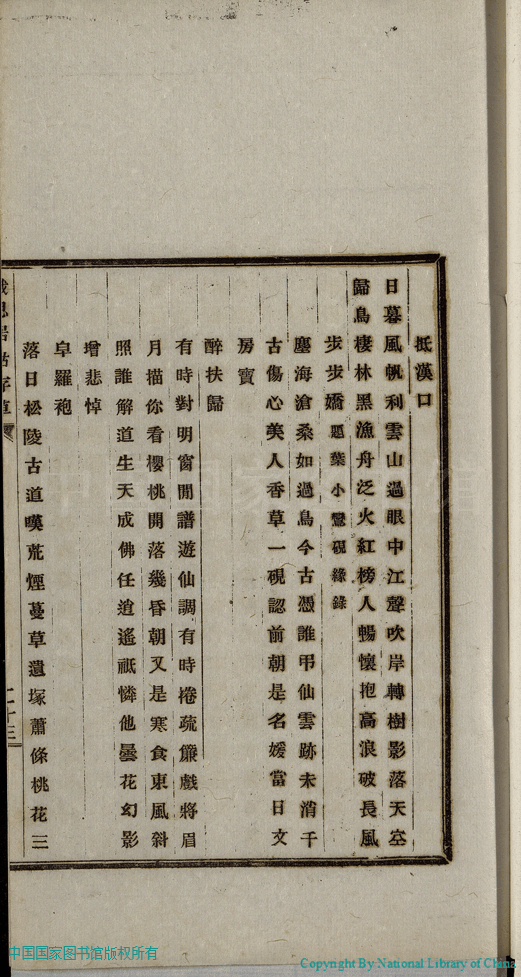 抵漢口
日暮風帆利雲山過眼中江聲吹岸轉樹影落天空
歸鳥棲林黑漁舟泛火紅榜人暢懷抱高浪破長風
步步嬌題葉小鸞硯緣錄
塵海滄桑如過鳥今古憑誰弔仙雲跡未消千
古傷心美人香草一硯認前朝是名媛當日文
房寶
醉扶歸
有時對明窗閒譜遊仙調有時捲疏簾戲將眉
月描你看櫻桃開落幾昏朝又是寒食東風斜
照誰解道生天成佛任逍遙祇憐他曇花幻影
增悲悼
皁羅袍
落日松陵古道嘆荒煙蔓草遺塚蕭條桃花三
二十三
中国国家图书馆版权所有
Copyright By National Library of China